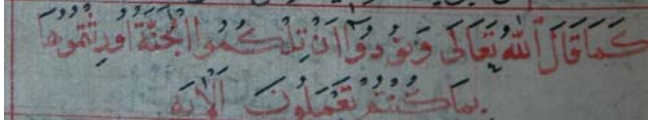 كَمَا قَالَ اللّٰهُ تَعَالَى وَنُودُوٓا اَنْ تِلْكُمُوا الْجَنَّةُ اُورِثْتُمُوهَا
بِمَا كُنْتُمْ تَعْمَلُونَ اَلْاٰيَه